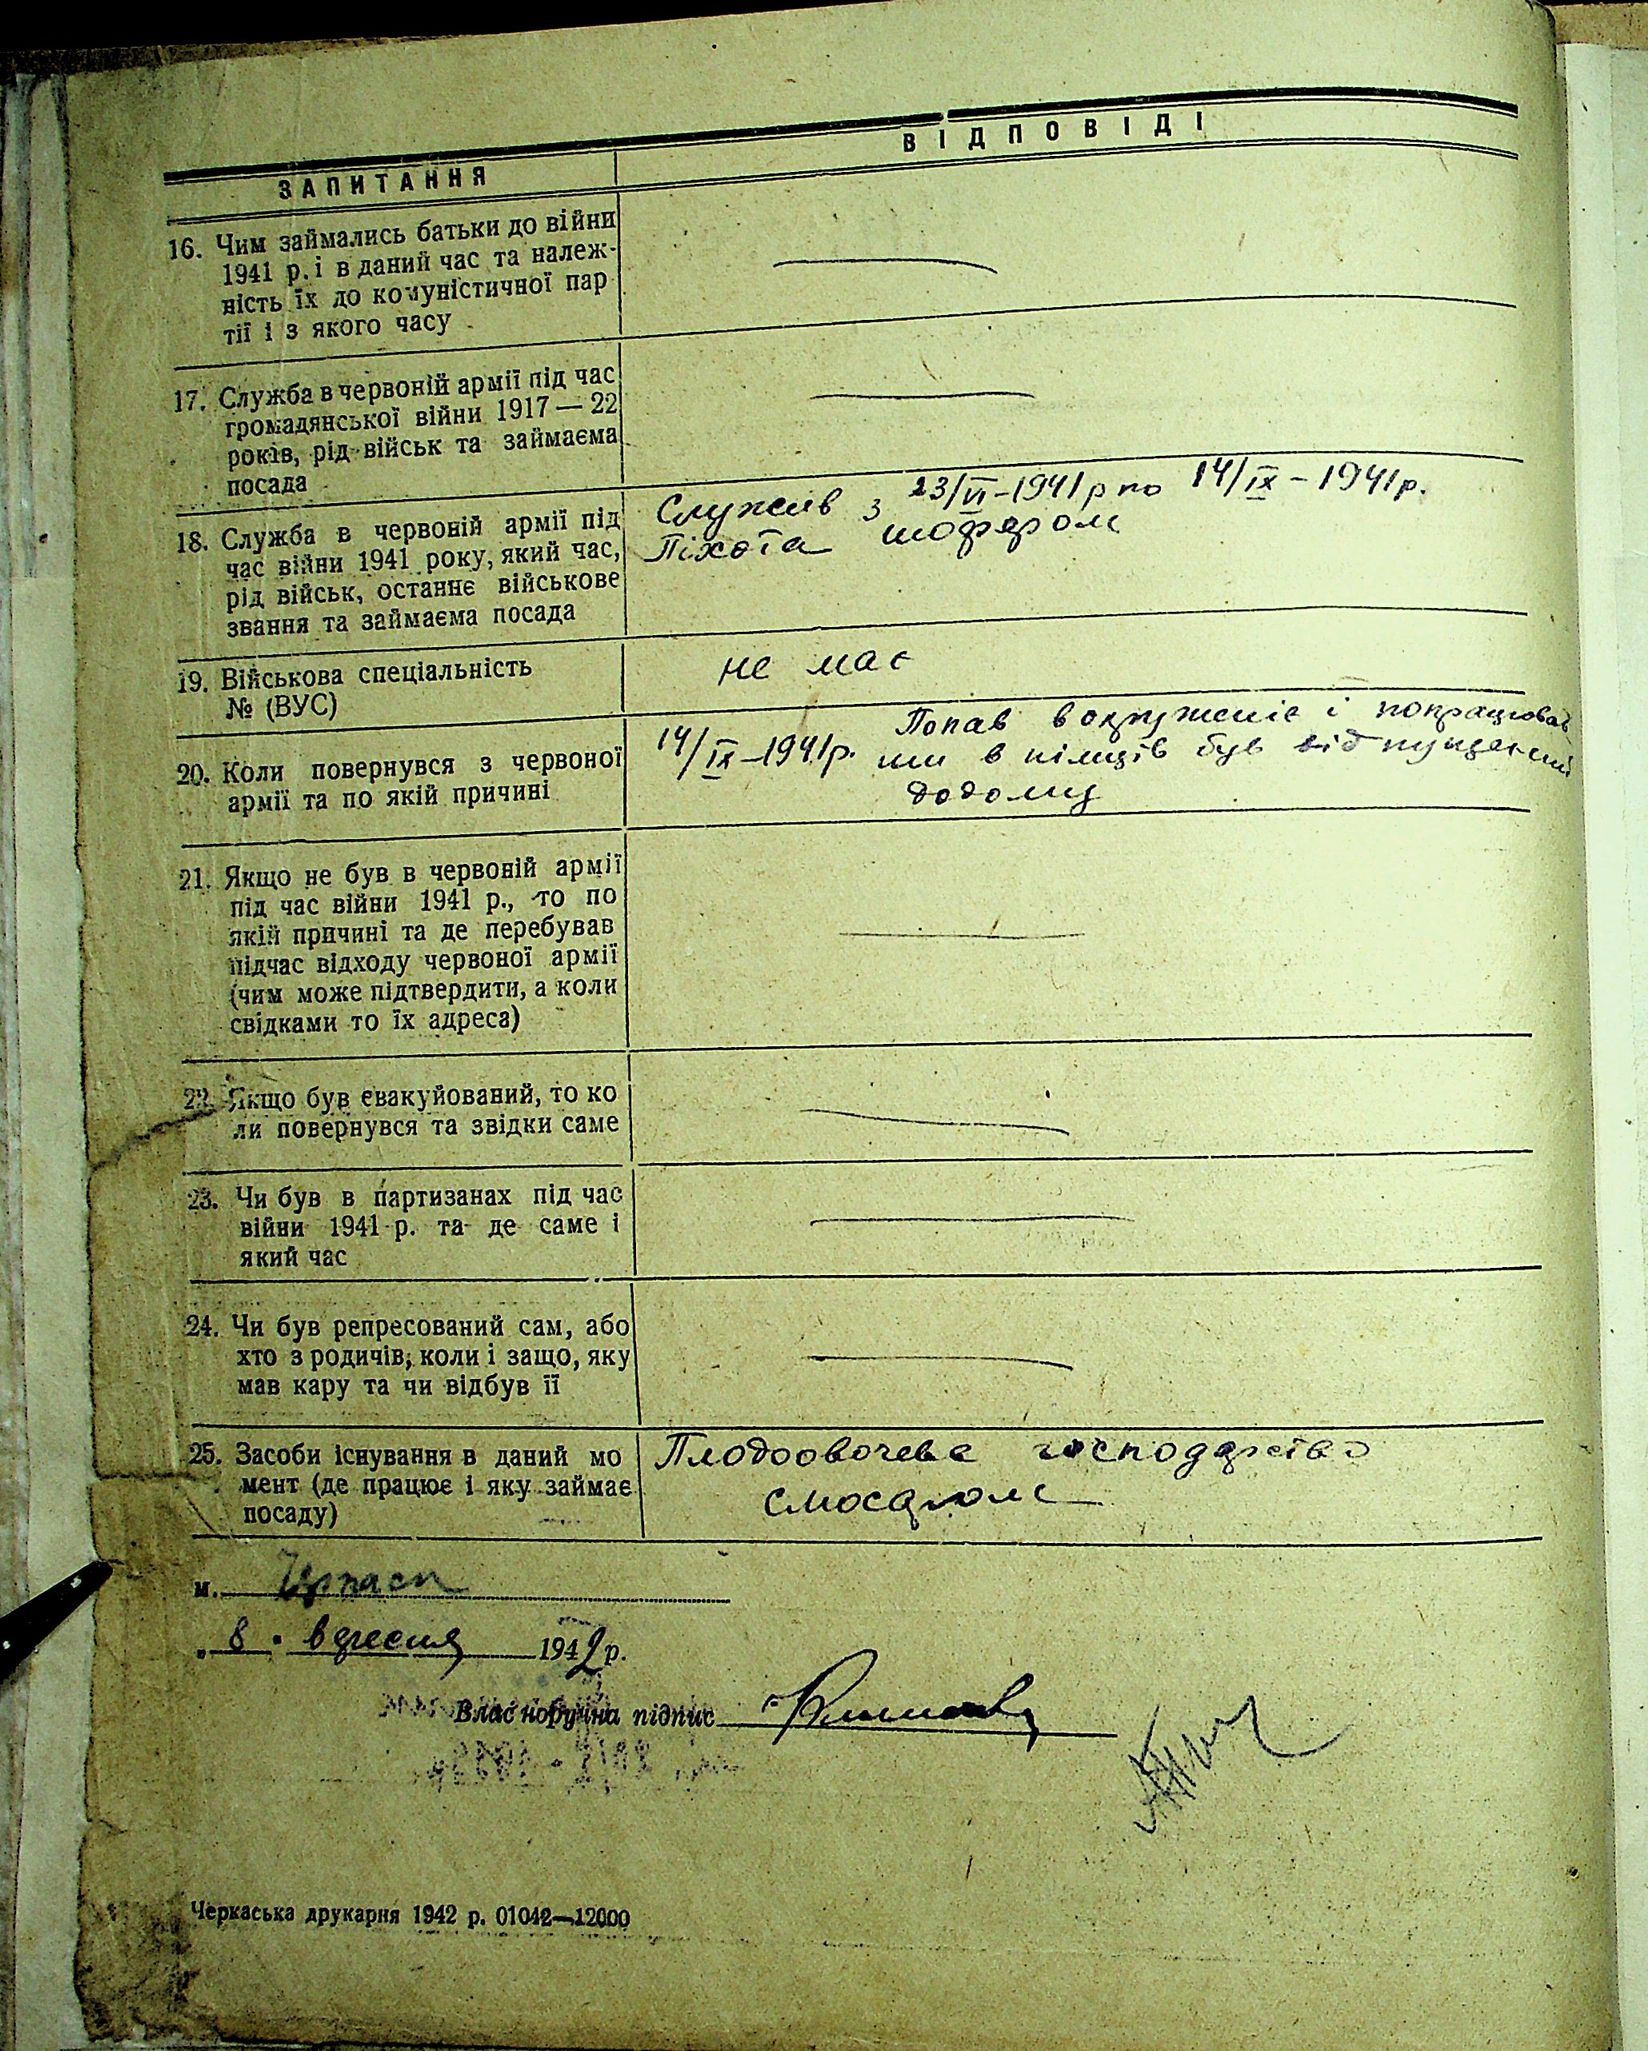 ЗАПИТАННЯ
ВІДПОВІДІ
16. Чим займались батьки до війни
1941 р. і в даний час та належ-
ність їх до комуністичної пар
тії і з якого часу
17. Служба в червоній армії під час
громадянської війни 1917—22
років, рід військ та займаєма
посада
18. Служба в червоній армії під
час війни 1941 року, який час,
рід військ, останнє військове
звання та займаєма посада
Служив з 23/VI-1941 р по 14/IX-1941 р.
Піхота шофером
19. Військова спеціальність
№ (ВУС)
не має
20. Коли повернувся з червоної
армії та по якій причині
14/IX-1941 р. Попав в окруженіє і попрацював
ши в німців був відпущений
додому
21. Якщо не був в червоній армії
під час війни 1941 р., то по
якій причині та де перебував
підчас відходу червоної армії
(чим може підтвердити, а коли
свідками то їх адреса)
22. Якщо був евакуйований, то ко
ли повернувся та звідки саме
23. Чи був в партизанах під час
війни 1941 р. та де саме і
який час
24. Чи був репресований сам, або
хто з родичів, коли і защо, яку
мав кару та чи відбув її
25. Засоби існування в даний мо
мент (де працює і яку займає
посаду)
Плодоовочеве господарство
м. Черкаси
„8" вересня 1942 р.
Власноручна підпис
Черкаська друкарня 1942 р. 01042—12000